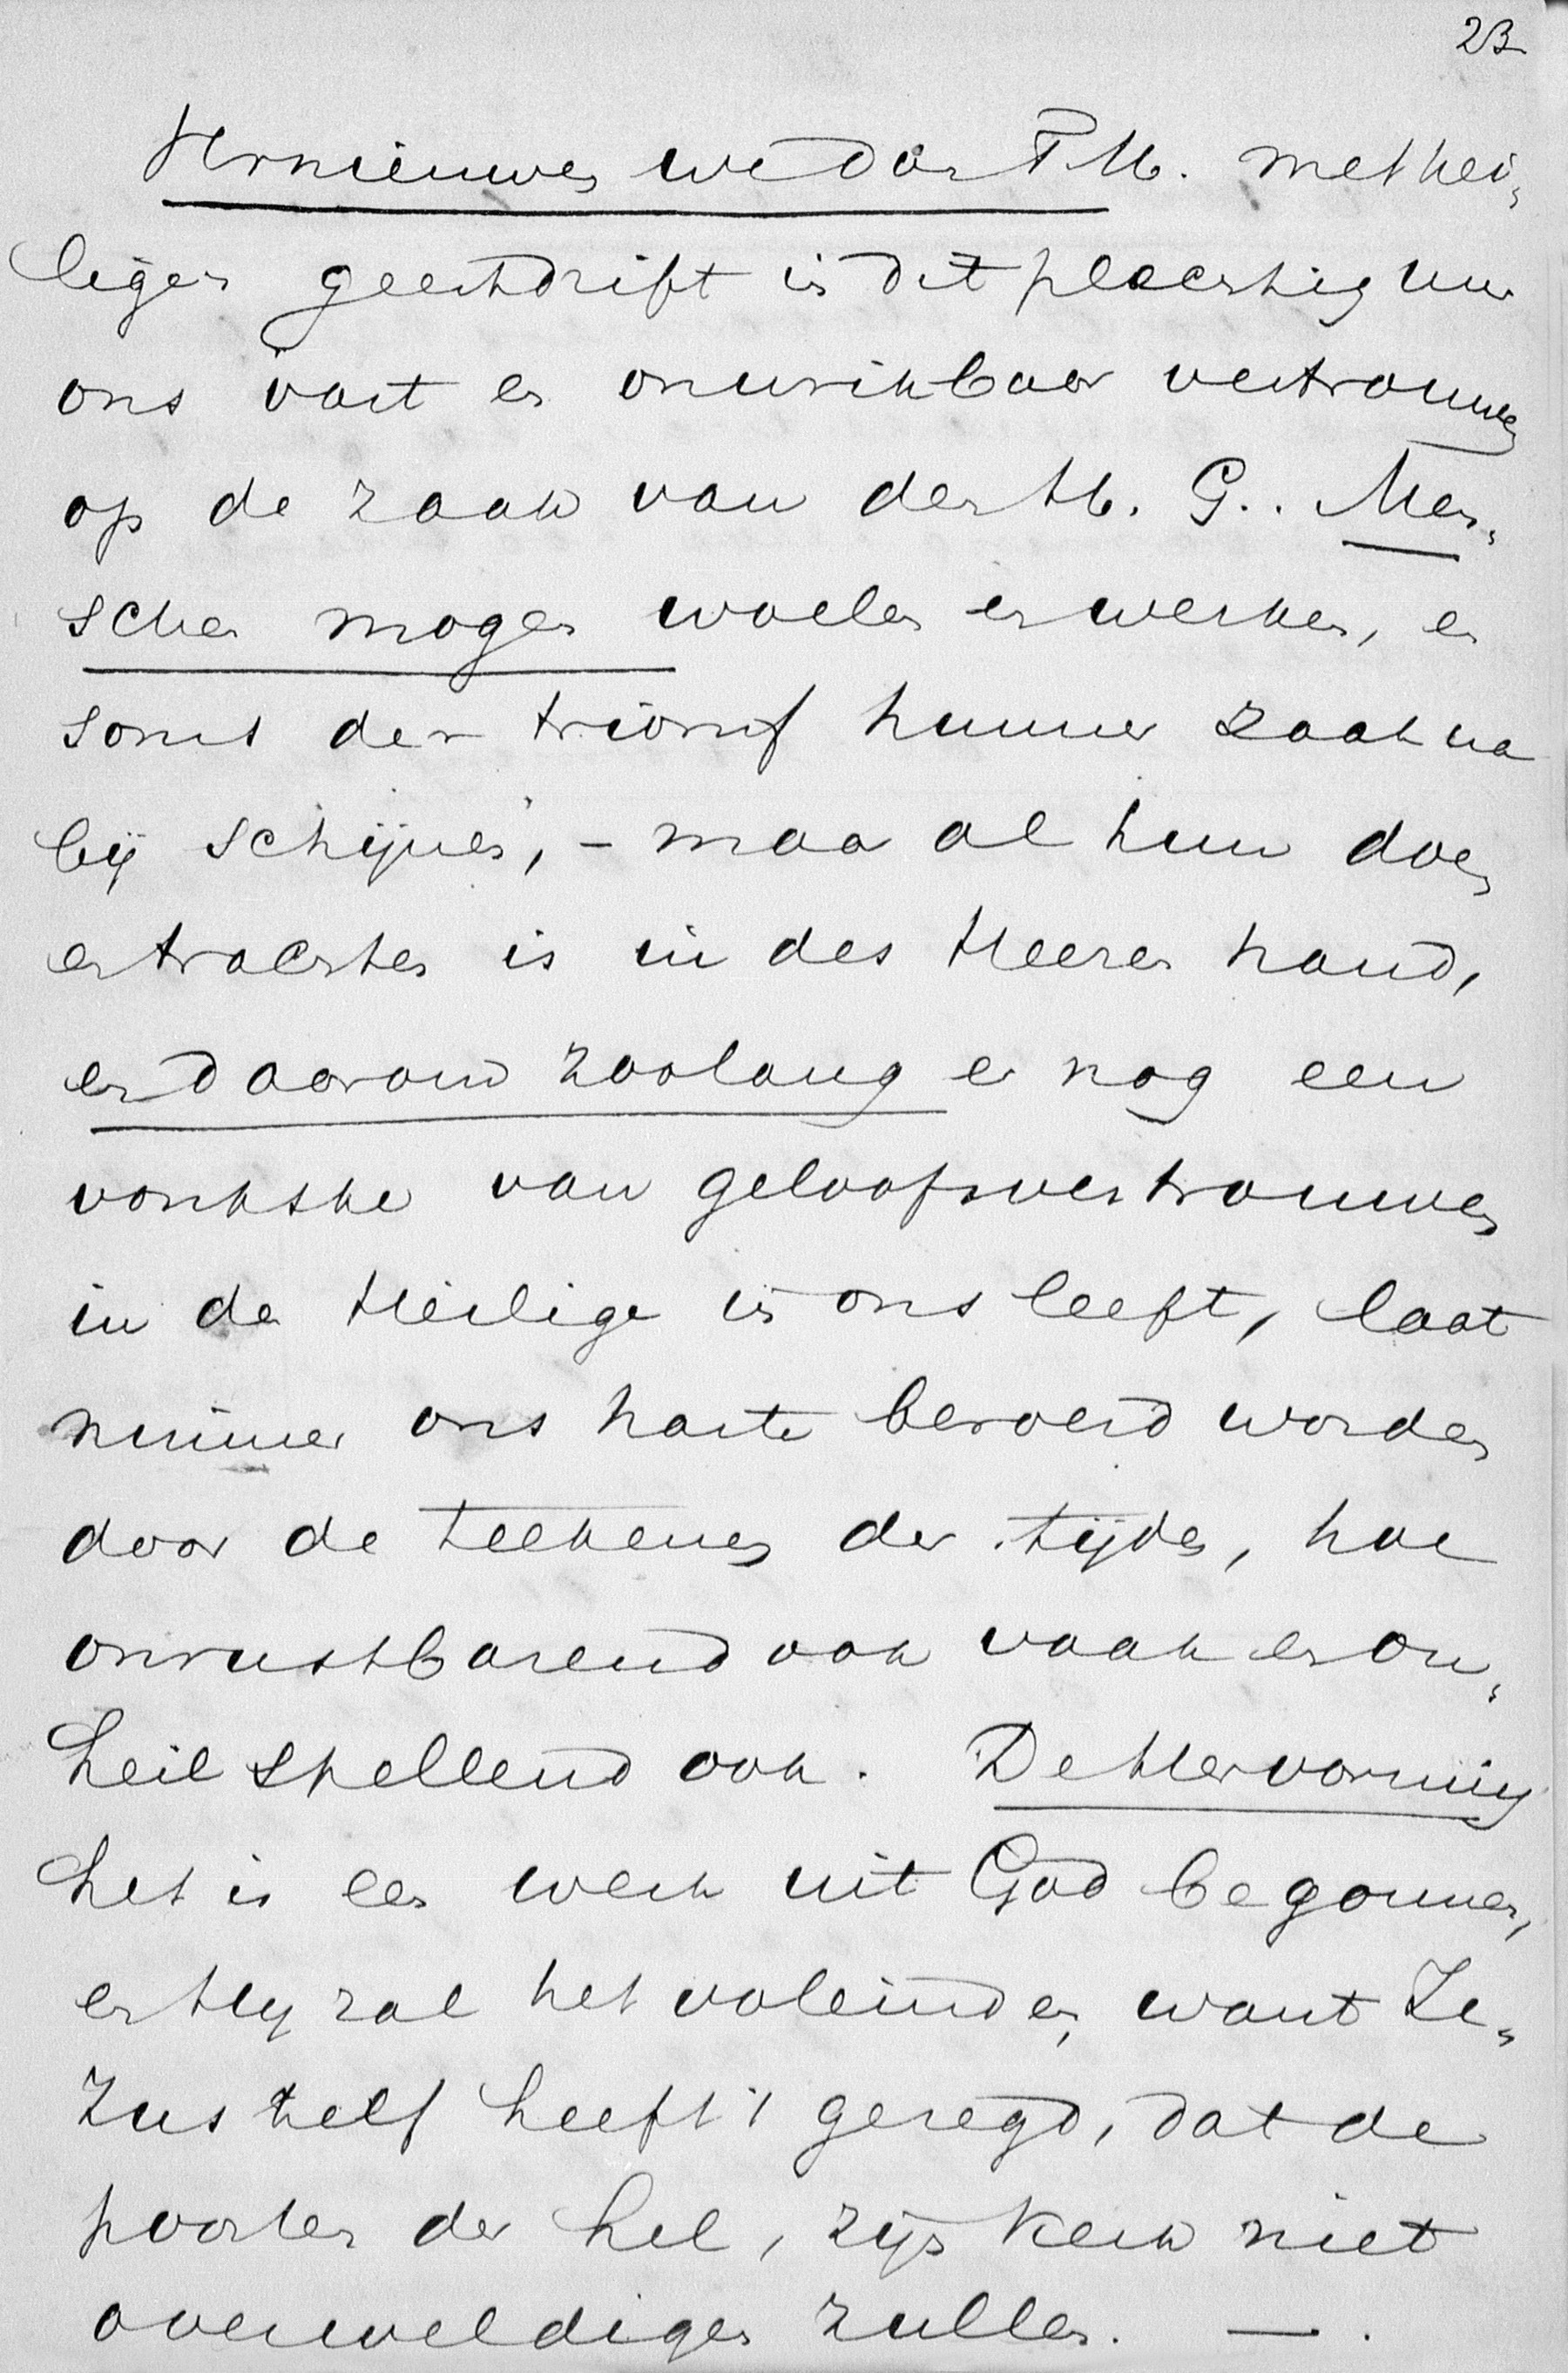 23
Vernieuwen we dan T. H. met hei„
ligen geestdrift in dit plechtig uur
ons vast en onwrikbaar vertrouwen
op de zaak van den H. G.. Men„
schen mogen woelen en werken, en
soms den triomf hunner zaak na
bij schijnen, – maar al hun doen
en trachten is in des Heeren hand,
en daarom zoolang er nog een
vonkske van geloofsvertrouwen
in de Heilige in ons leeft, laat
nimmer ons harte beroerd worden
door de teekenen der tijden, hoe
onrustbarend ook vaak en on„
heilspellend ook. De Hervorming
het is een werk uit God begonnen,
en Hij zal het voleinden, want Je„
zus zelf heeft 't gezegd, dat de
poorten der hel, zijn Kerk niet
overweldigen zullen. — .